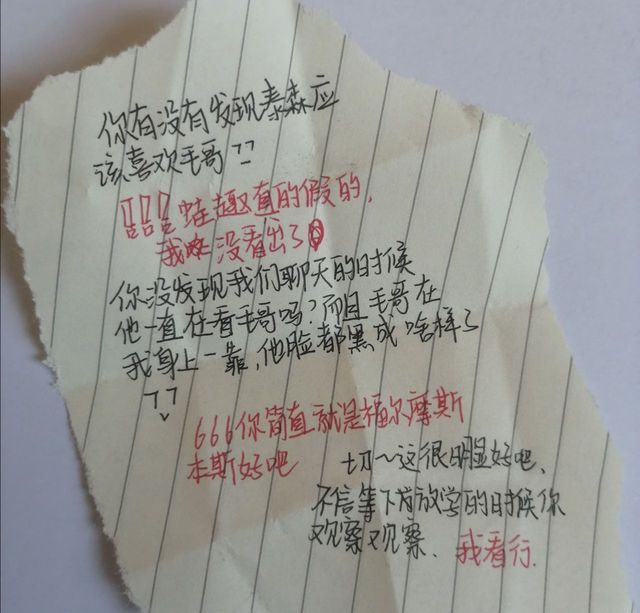 你有没有发现泰森应
该喜欢毛哥
!!! 蛙趣真的假的,
我 没看出了
你没发现我们聊天的时候
他一直在看毛哥吗,而且毛哥在
我身上一靠,他脸都黑成啥样了
666你简直就是福尔摩斯
本斯好吧
切~这很明显好吧、
不信等下放学的时候你
观察观察. 我看行.